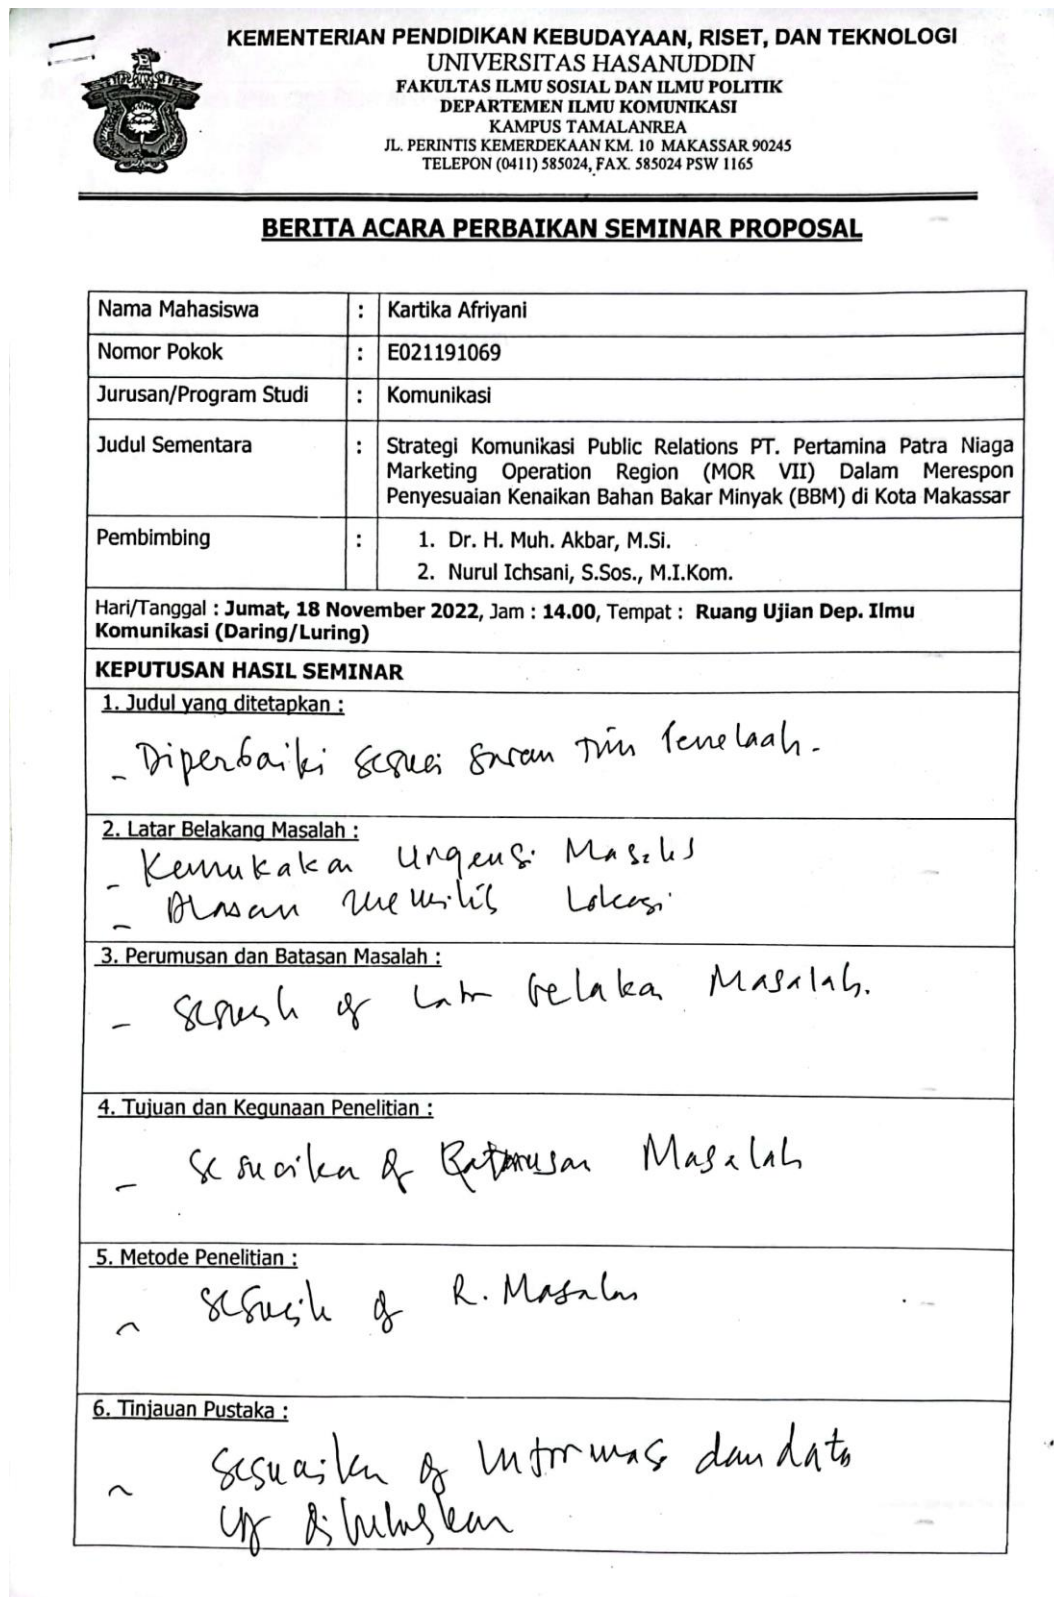 KEMENTERIAN PENDIDIKAN KEBUDAYAAN, RISET, DAN TEKNOLOGI
UNIVERSITAS HASANUDDIN
FAKULTAS ILMU SOSIAL DAN ILMU POLITIK
DEPARTEMEN ILMU KOMUNIKASI
KAMPUS TAMALANREA
JL. PERINTIS KEMERDEKAAN KM. 10 MAKASSAR 90245
TELEPON (0411) 585024, FAX. 585024 PSW 1165
BERITA ACARA PERBAIKAN SEMINAR PROPOSAL
Nama Mahasiswa : Kartika Afriyani
Nomor Pokok : E021191069
Jurusan/Program Studi : Komunikasi
Judul Sementara : Strategi Komunikasi Public Relations PT. Pertamina Patra Niaga
Marketing Operation Region (MOR VII) Dalam Merespon
Penyesuaian Kenaikan Bahan Bakar Minyak (BBM) di Kota Makassar
Pembimbing : 1. Dr. H. Muh. Akbar, M.Si.
2. Nurul Ichsani, S.Sos., M.I.Kom.
Hari/Tanggal : Jumat, 18 November 2022, Jam : 14.00, Tempat : Ruang Ujian Dep. Ilmu
Komunikasi (Daring/Luring)
KEPUTUSAN HASIL SEMINAR
1. Judul yang ditetapkan :
- Diperbaiki sesuai saran Tim Penelaah.
2. Latar Belakang Masalah :
- Kemukakan Urgensi Masalah
- Alasan memilih Lokasi
3. Perumusan dan Batasan Masalah :
- Latar belakang Masalah.
4. Tujuan dan Kegunaan Penelitian :
- sesuaikan Masalah
5. Metode Penelitian :
- R. Masalah
6. Tinjauan Pustaka :
- Sesuaikan Informasi dan data
yg dibutuhkan